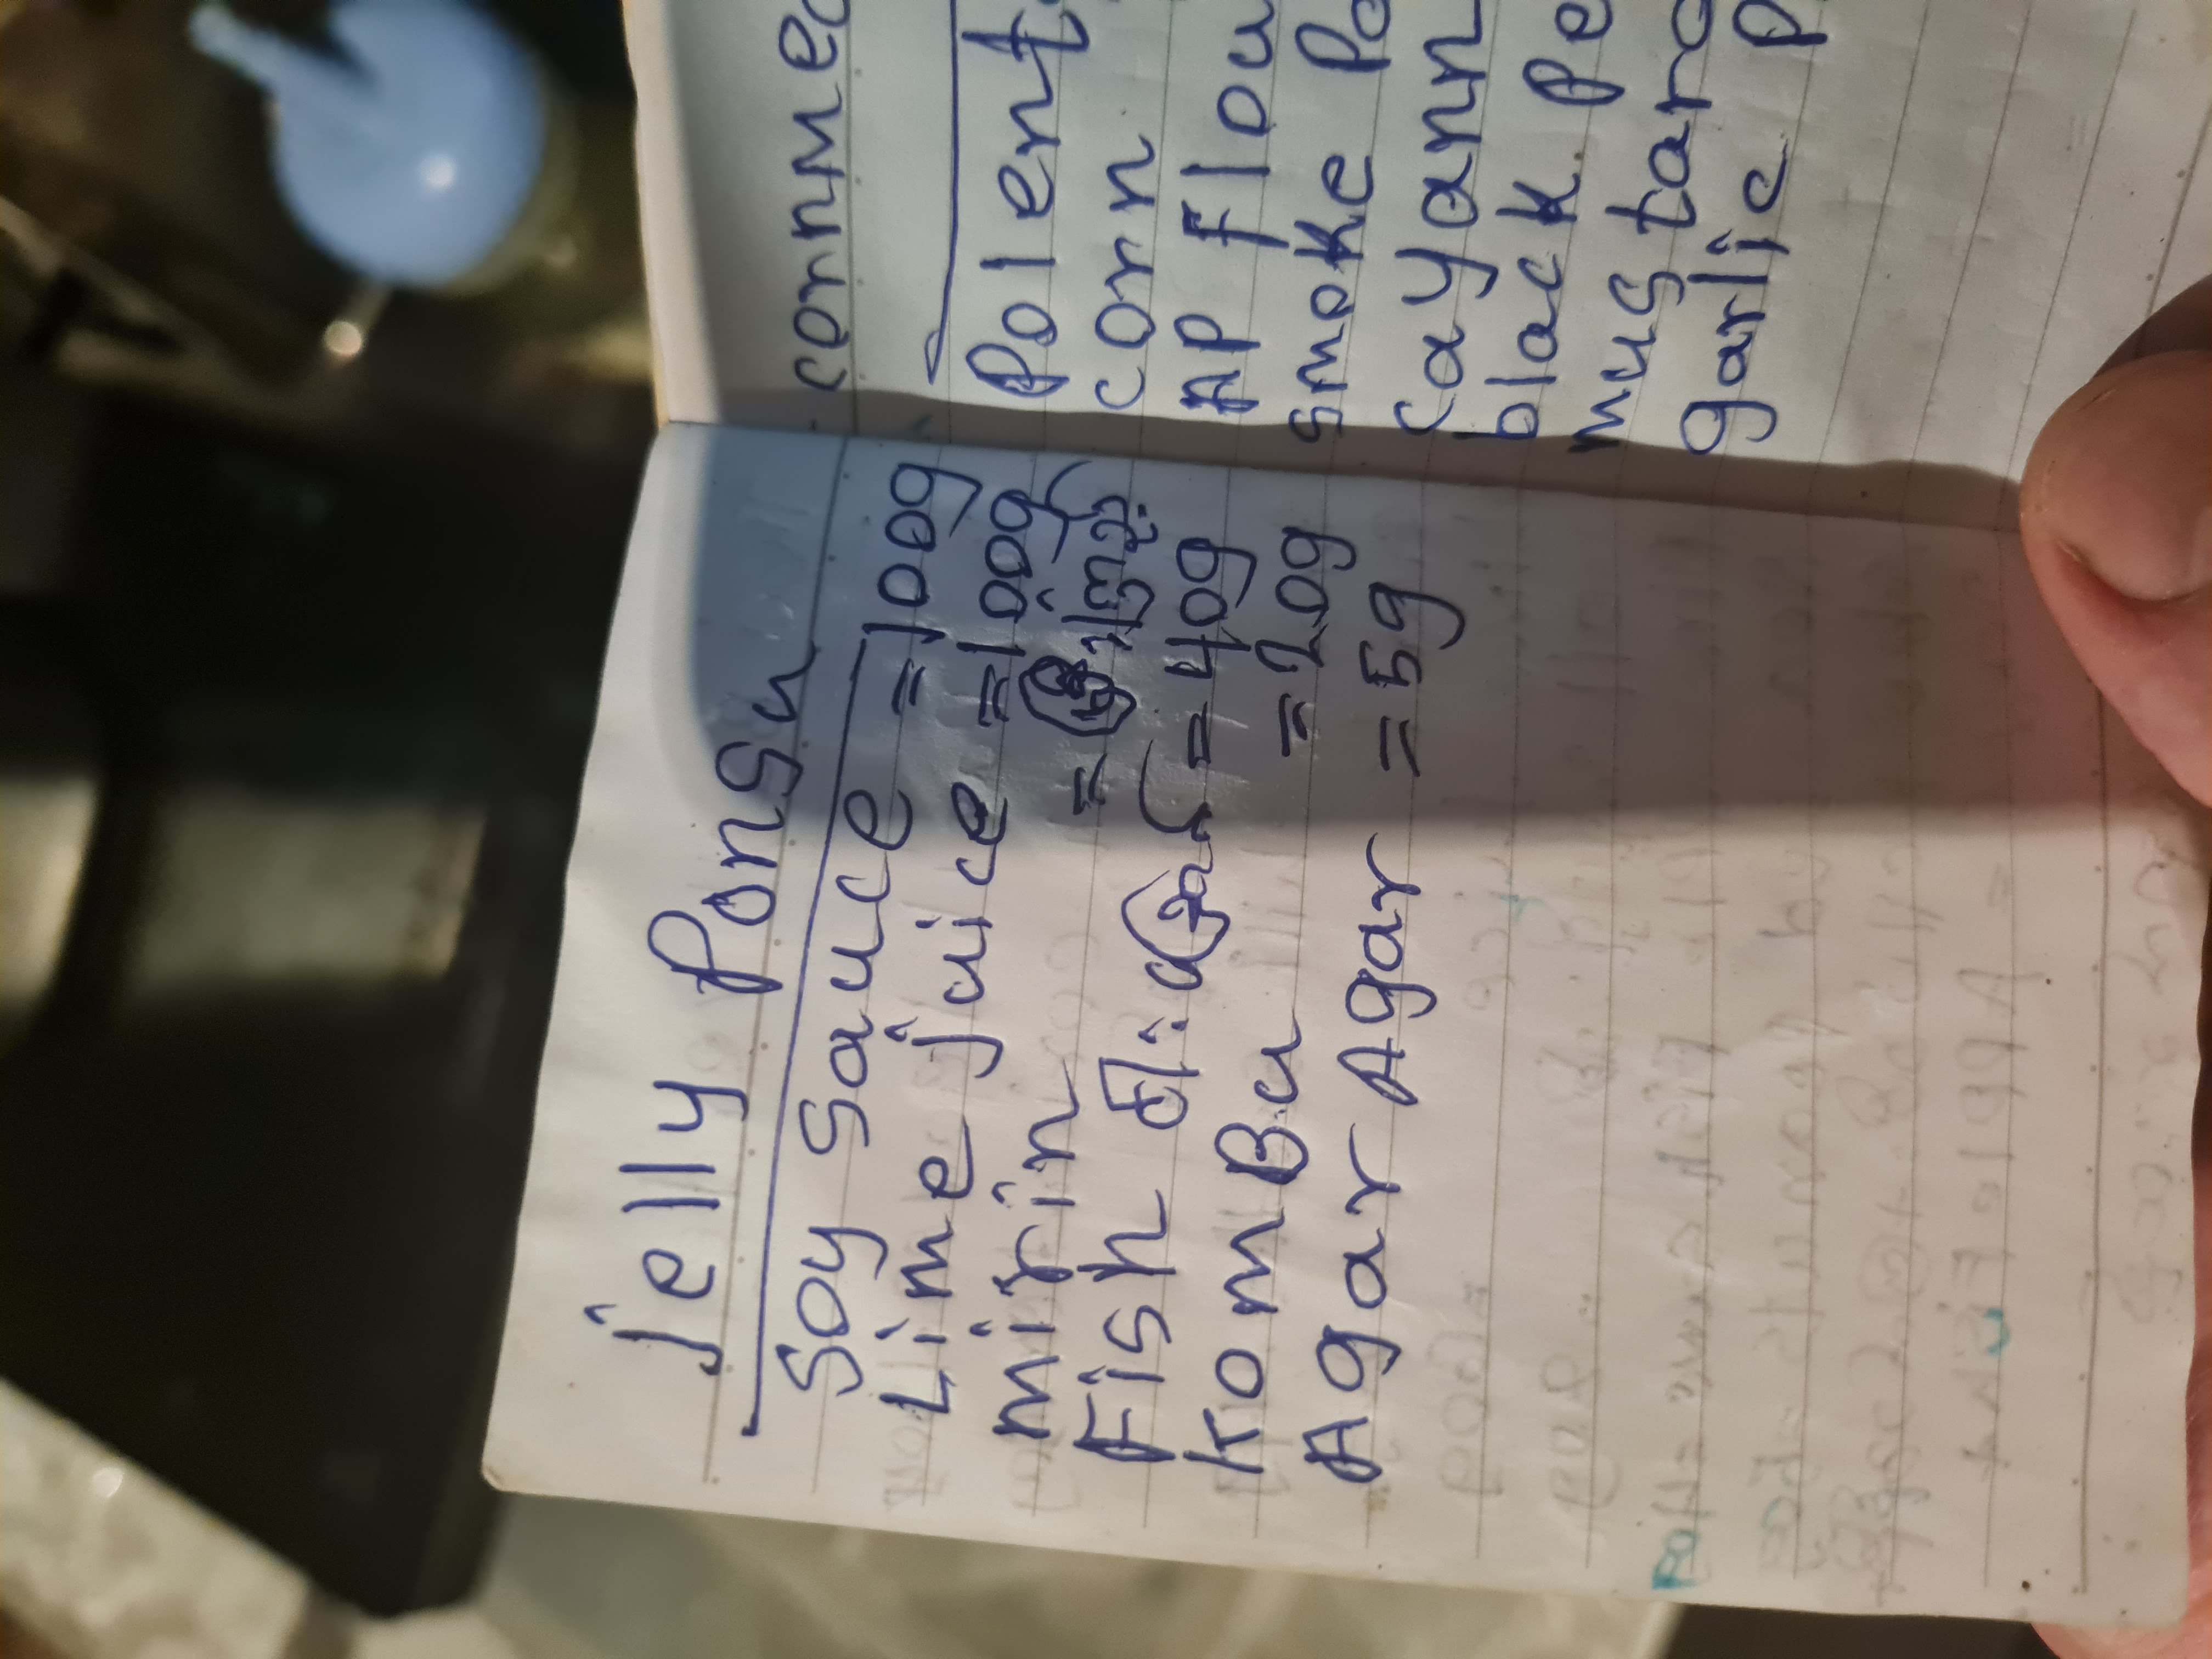 jelly Ponsu
Soy sauce = 100g
Lime juice = 100g
mirin =
Fish = 40g
KomBu = 20g
Agar Agar = 5g
Polent
corn
AP Flou
smoke Pa
cayann
black Pe
mustard
garlic P